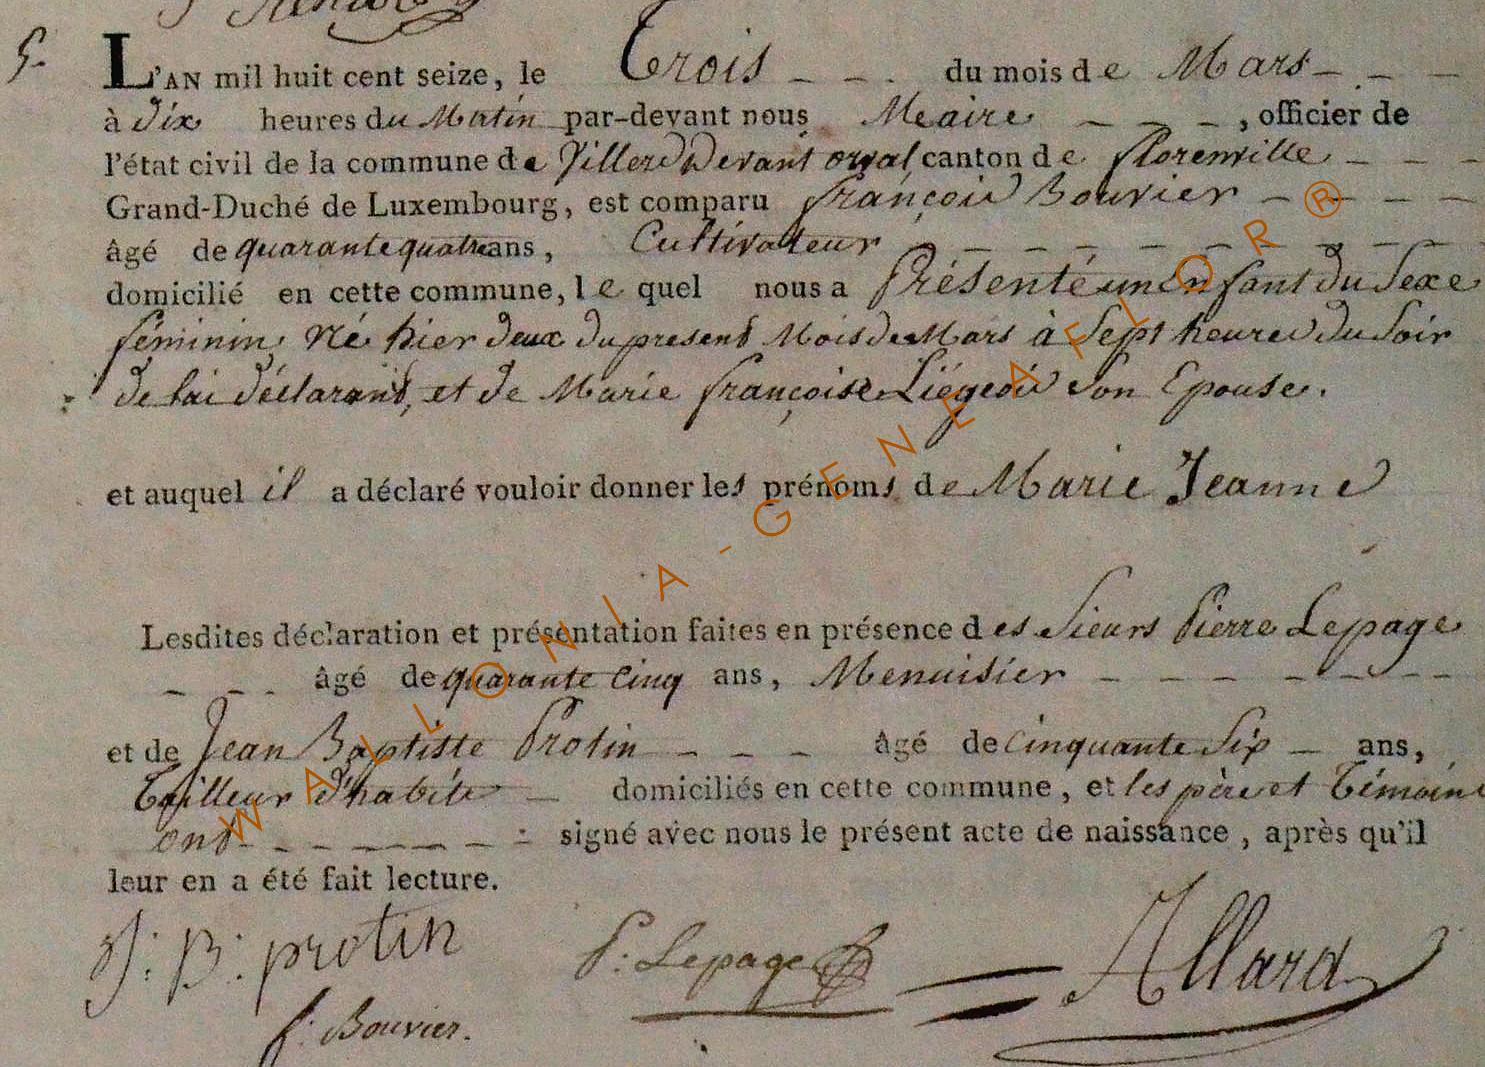 5.
L'AN mil huit cent seize, le Trois du mois de Mars
à Dix heures du Matin par-devant nous Meaire, officier de
l'état civil de la commune de Villers Devant orval, canton de florenville
Grand-Duché de Luxembourg, est comparu françois Bouvier
âgé de quarante quatre ans, Cultivateur
domicilié en cette commune, le quel nous a Présenté un Enfant du Sexe
féminin, Né hier deux du present Mois de Mars à Sept heures du Soir
de lui déclarant, et de Marie françoise Liégeois Son Epouse.
et auquel il a déclaré vouloir donner les prénoms de Marie Jeanne
Lesdites déclaration et présentation faites en présence des Sieurs Pierre Lepage
âgé de quarante Cinq ans, Menuisier
et de Jean Baptiste Protin âgé de Cinquante Six ans,
Tailleur d'habits domiciliés en cette commune, et les père et Témoins
ont signé avec nous le présent acte de naissance, après qu'il
leur en a été fait lecture.
J: B: protin P: Lepage Allard
f: Bouvier.
WALLONIA-GENEAFLOR®